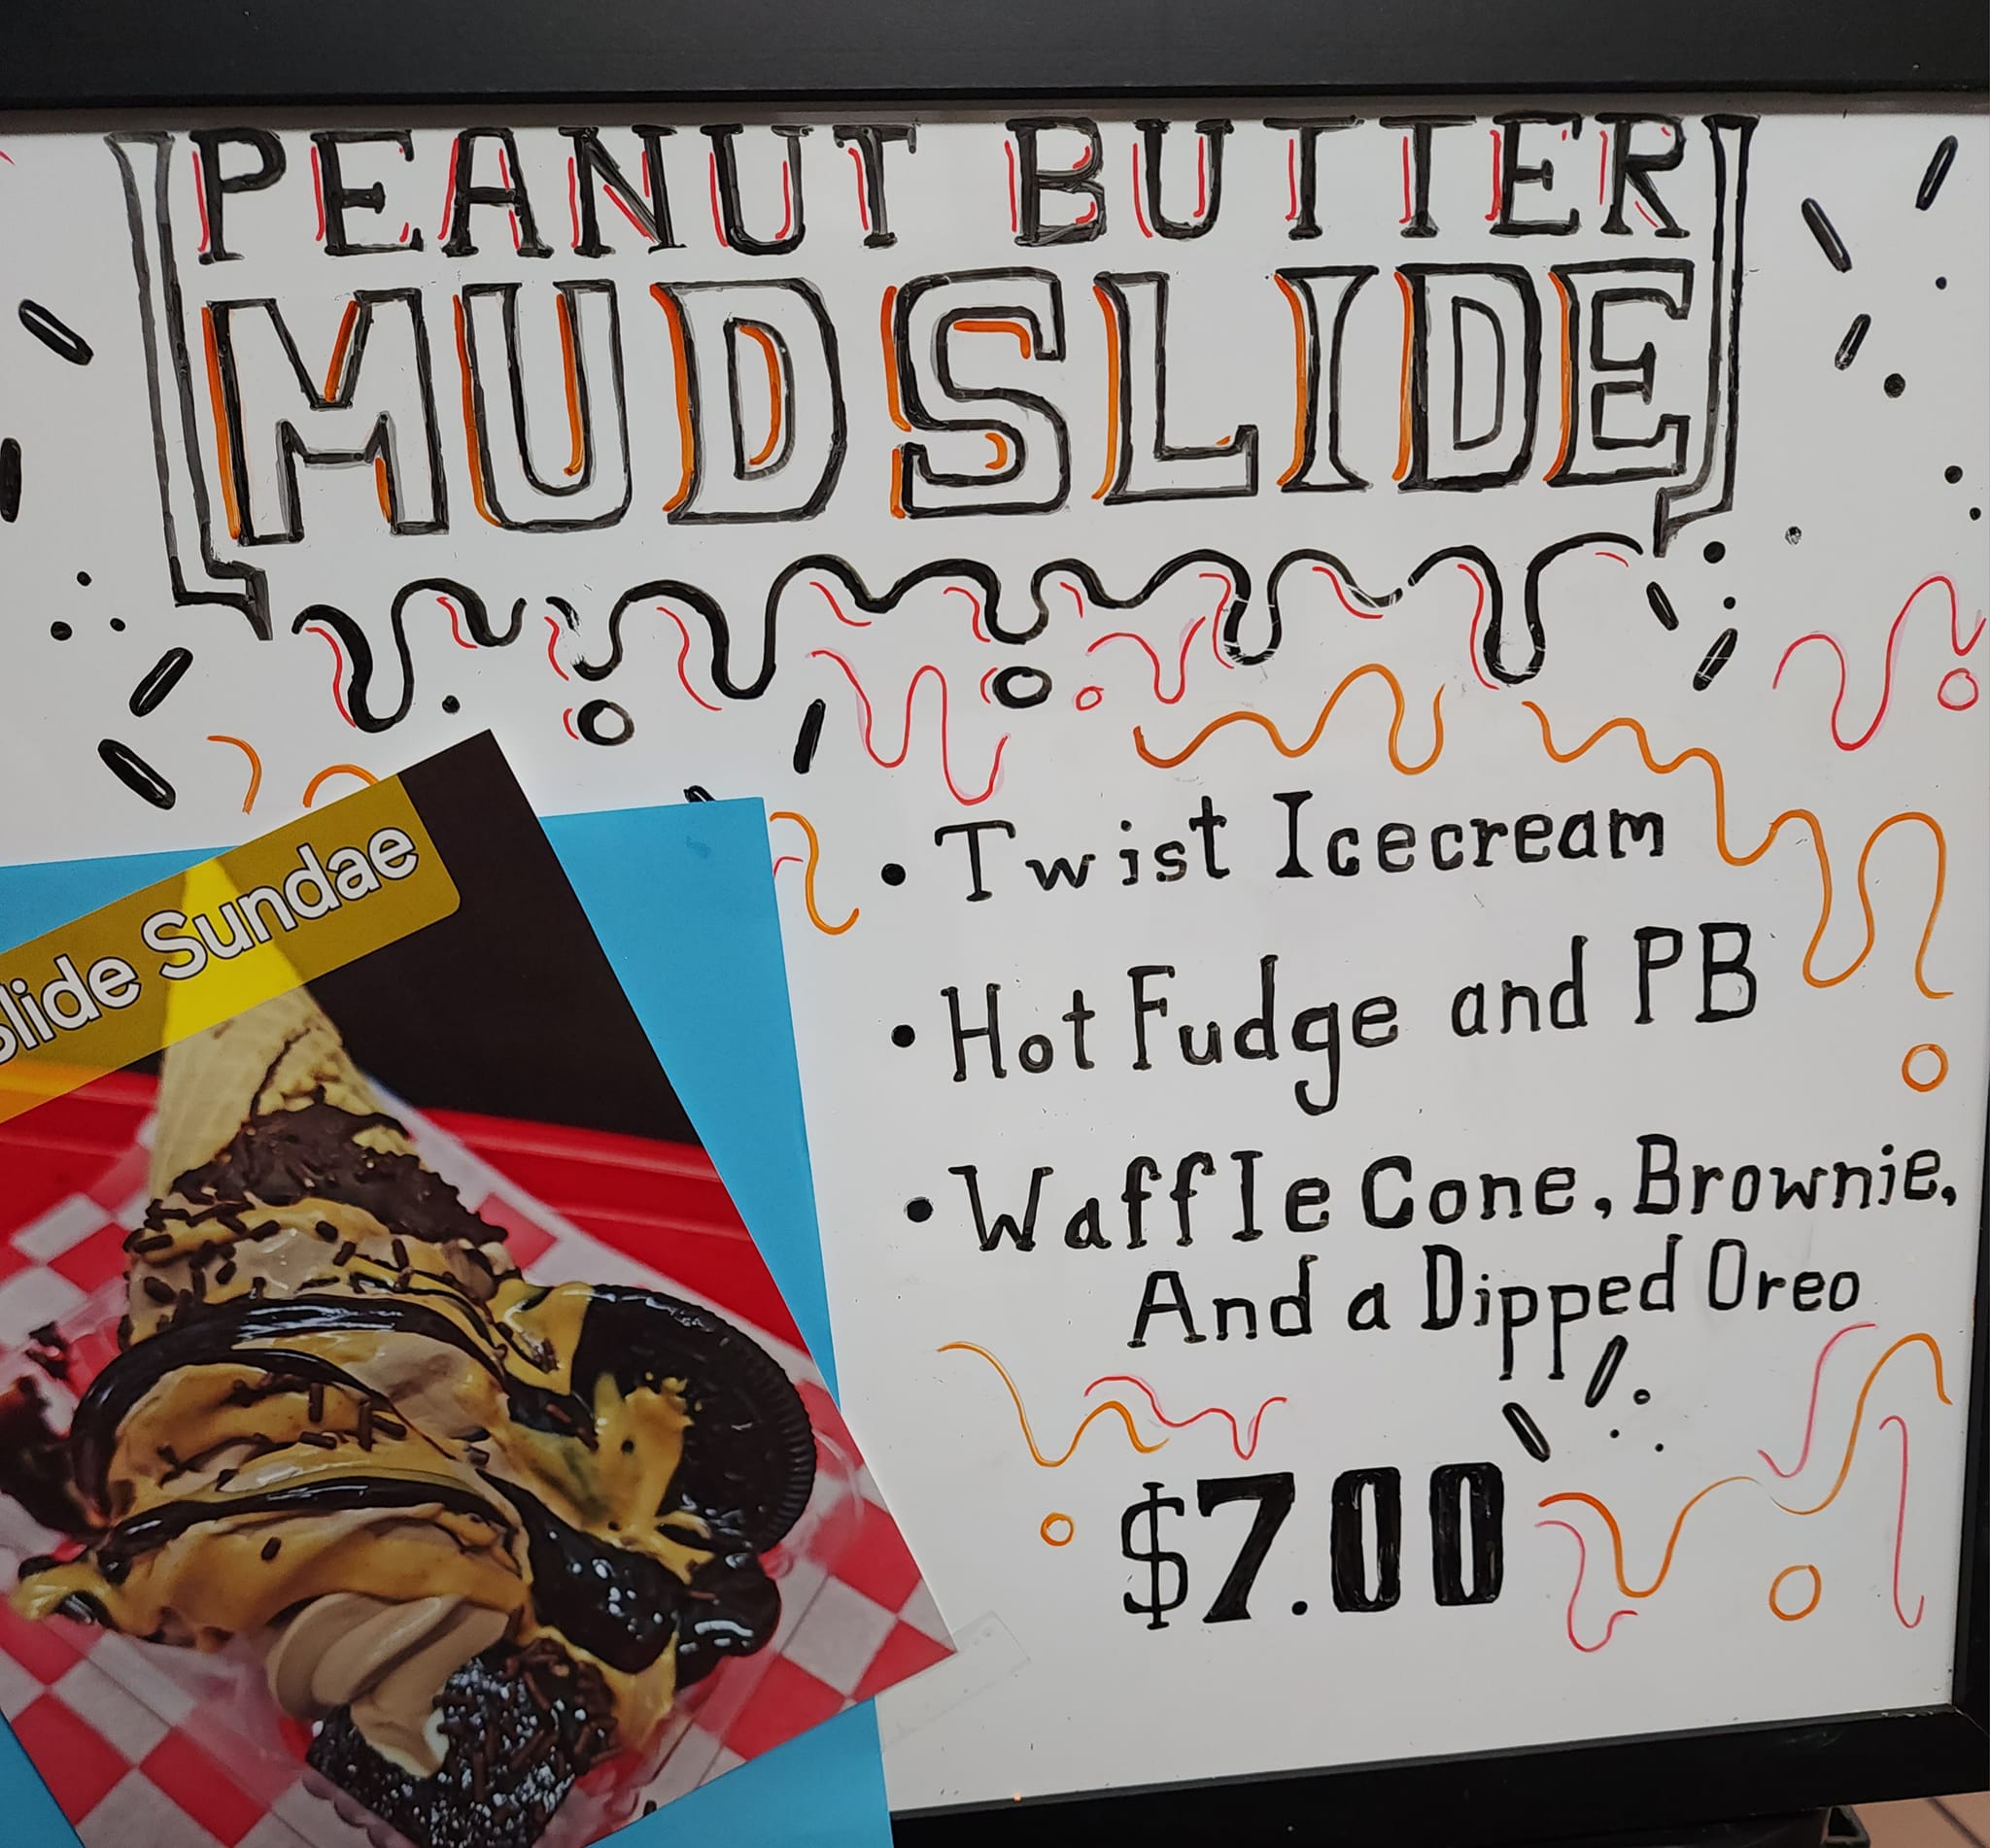 PEANUT BUTTER
MUDSLIDE
• Twist Icecream
• Hot Fudge and PB
• Waffle Cone, Brownie,
And a Dipped Oreo
$7.00
Slide Sundae